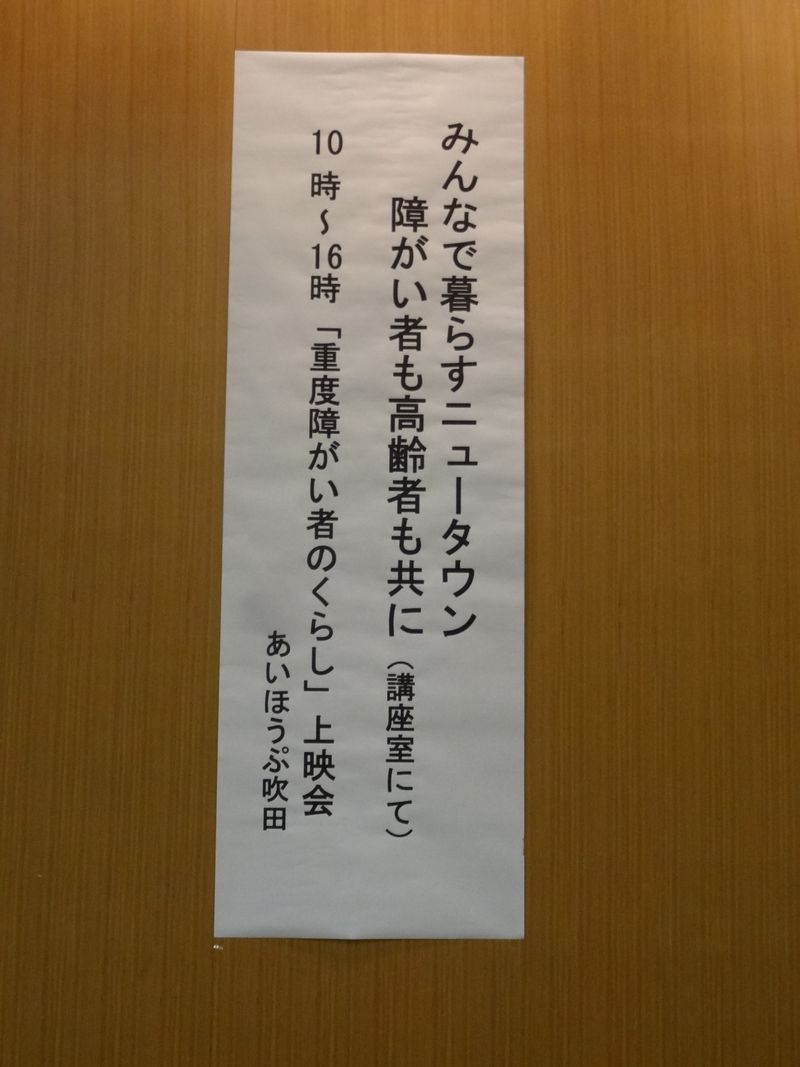 みんなで暮らすニュータウン
障がい者も高齢者も共に（講座室にて）
10時～16時「重度障がい者のくらし」上映会
あいほうぷ吹田